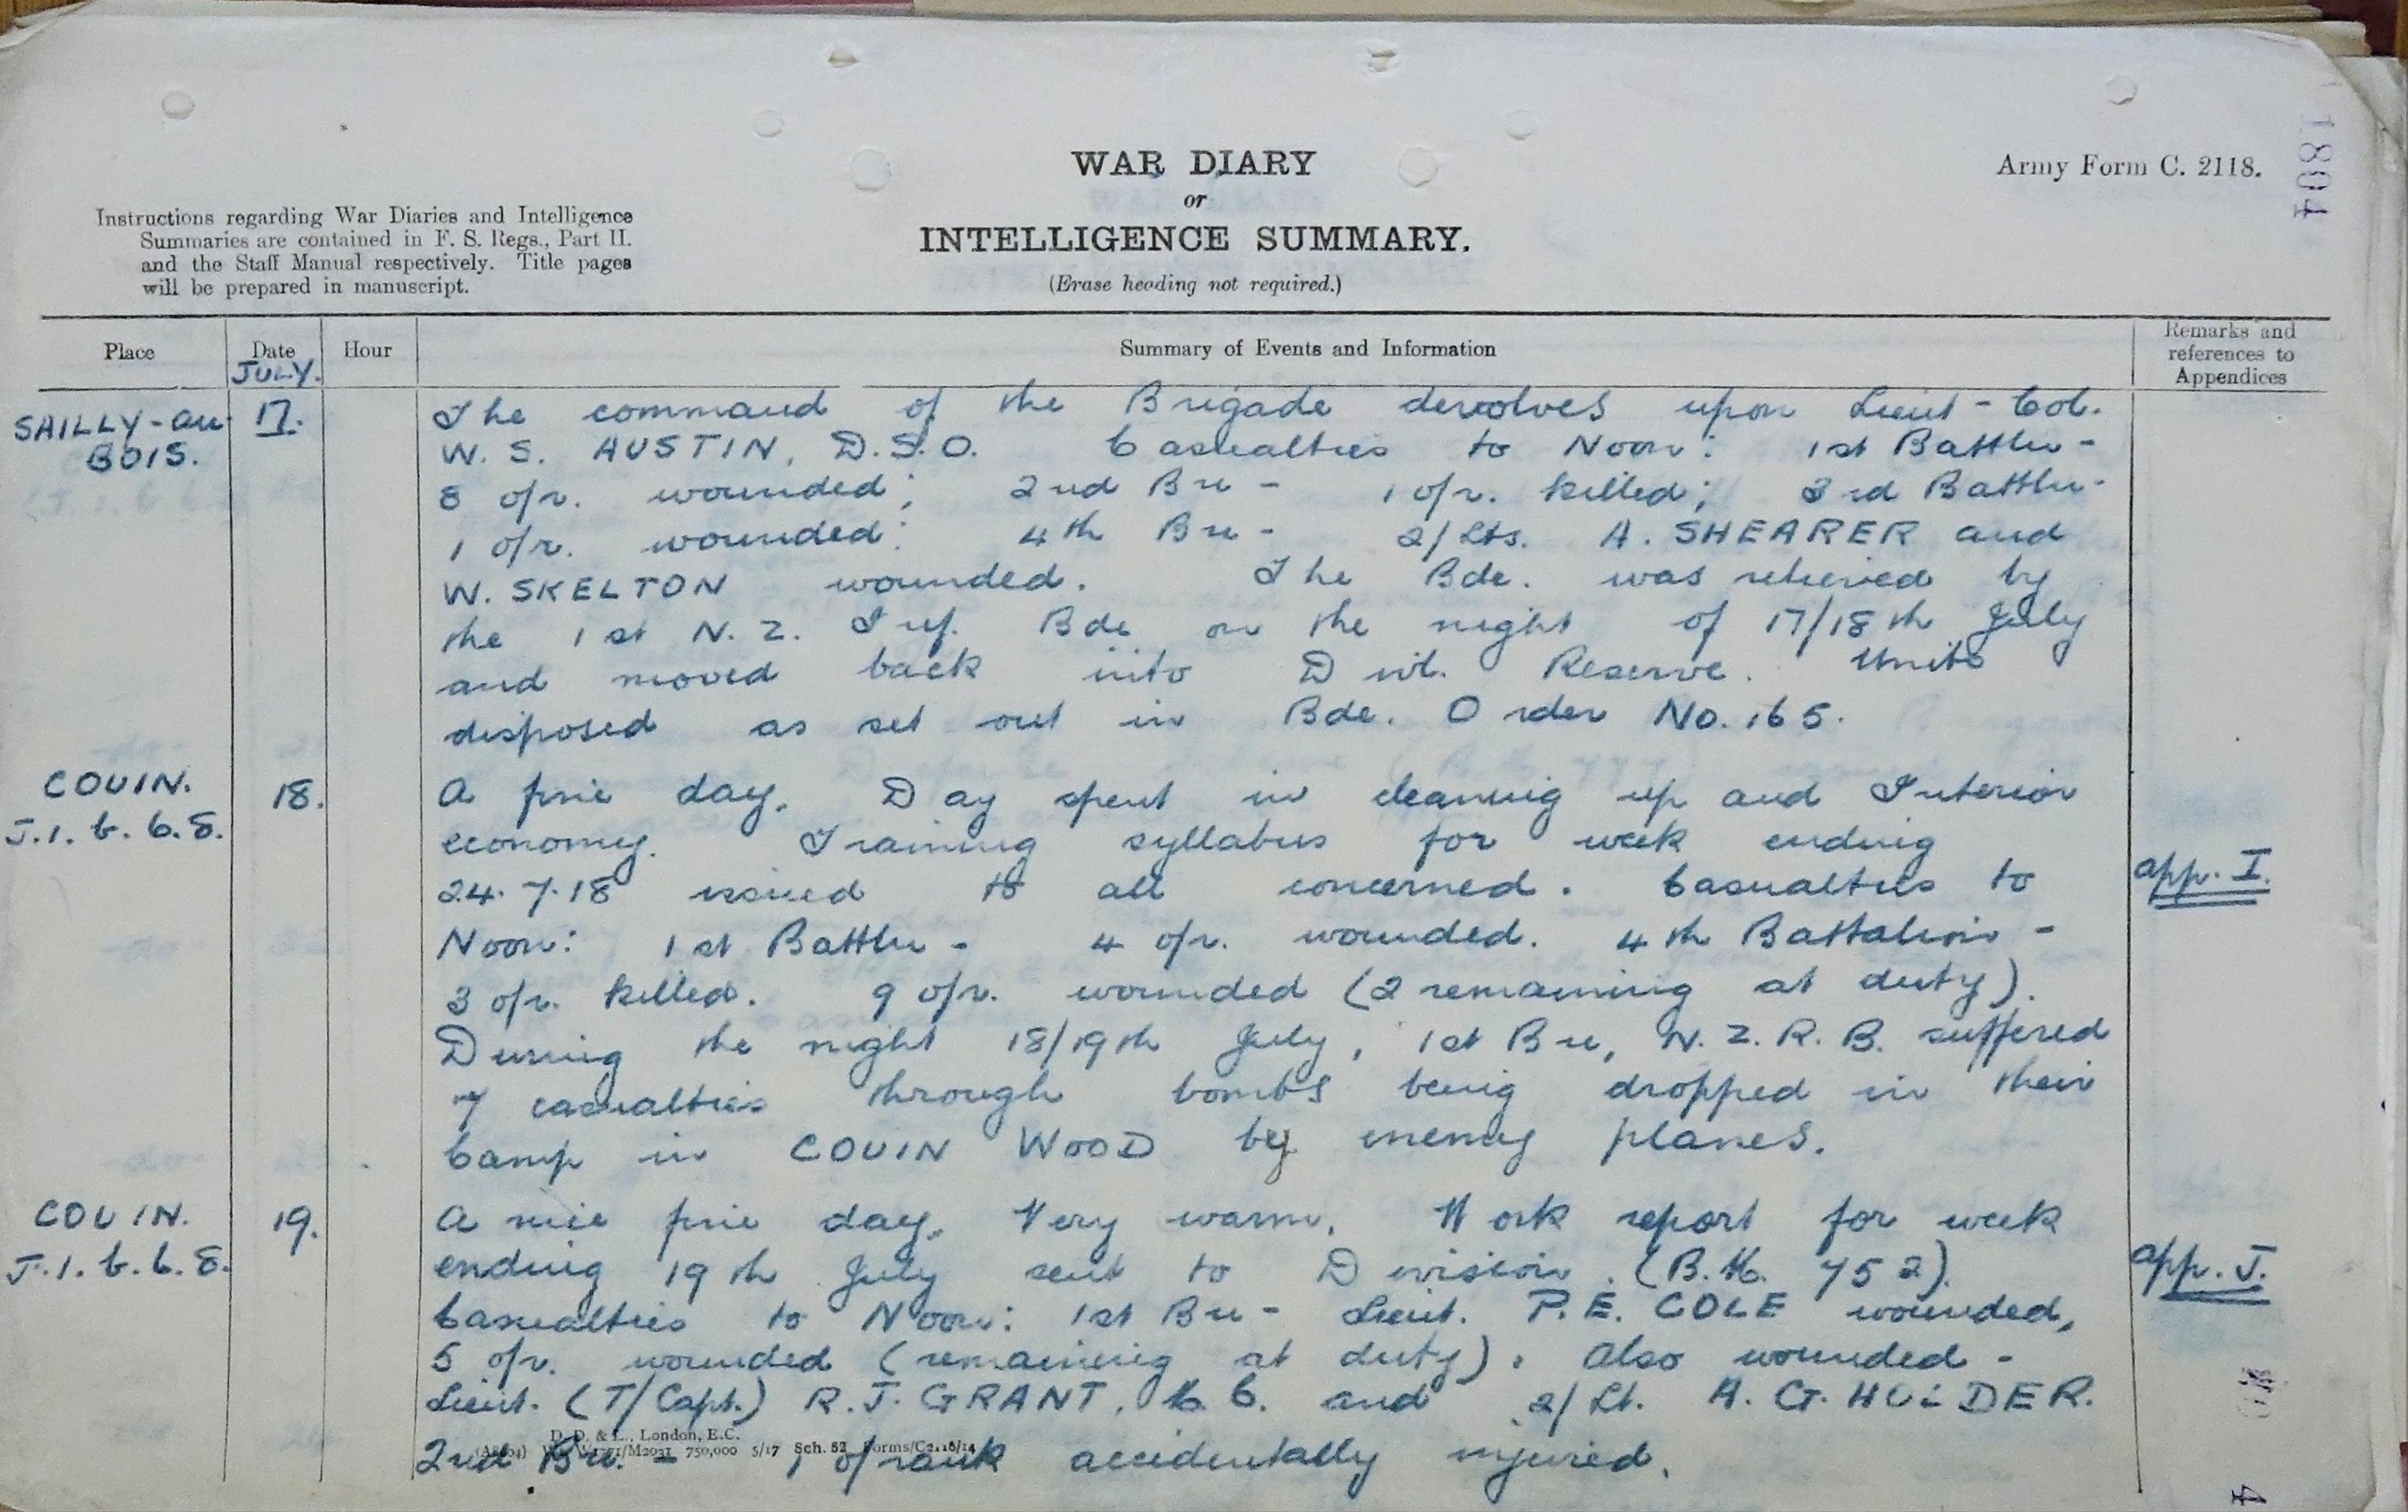 WAR DIARY
or
INTELLIGENCE SUMMARY.
(Erase heading not required.)
Army Form C. 2118.
1804
Instructions regarding War Diaries and Intelligence
Summaries are contained in F. S. Regs., Part II.
and the Staff Manual respectively. Title pages
will be prepared in manuscript.
Place
Date
JULY.
Hour
Summary of Events and Information
Remarks and
references to
Appendices
SAILLY-au-
BOIS.
17.
The command of the Brigade devolves upon Lieut-Col.
W. S. AUSTIN, D.S.O. Casualties to Noon: 1st Battln -
8 o/r. wounded; 2nd Bn - 1 o/r. killed; 3rd Battln -
1 o/r. wounded: 4th Bn - 2/Lts. A. SHEARER and
W. SKELTON wounded. The Bde. was relieved by
the 1st N.Z. Inf. Bde on the night of 17/18th July
and moved back into Divl. Reserve. Units
disposed as set out in Bde. Order No. 165.
COUIN.
J.1.b.6.8.
18.
A fine day. Day spent in cleaning up and Interior
economy. Training syllabus for week ending
24.7.18 issued to all concerned. Casualties to
Noon: 1st Battln - 4 o/r. wounded. 4th Battalion -
3 o/r. killed. 9 o/r. wounded (2 remaining at duty).
During the night 18/19th July, 1st Bn, N.Z.R.B. suffered
7 casualties through bombs being dropped in their
Camp in COUIN WOOD by enemy planes.
app. I.
COUIN.
J.1.b.6.8.
19.
A nice fine day. Very warm. Work report for week
ending 19th July sent to Division. (B.M. 752).
Casualties to Noon: 1st Bn - Lieut. P.E. COLE wounded,
5 o/r. wounded (remaining at duty). Also wounded -
Lieut. (T/Capt.) R.J. GRANT, M.C. and 2/Lt. A. G. HOLDER.
2nd Bn. - 1 o/rank accidentally injured.
app. J.
D. D. & L., London, E.C.
750,000 5/17 Sch. 52 Forms/C2118/14